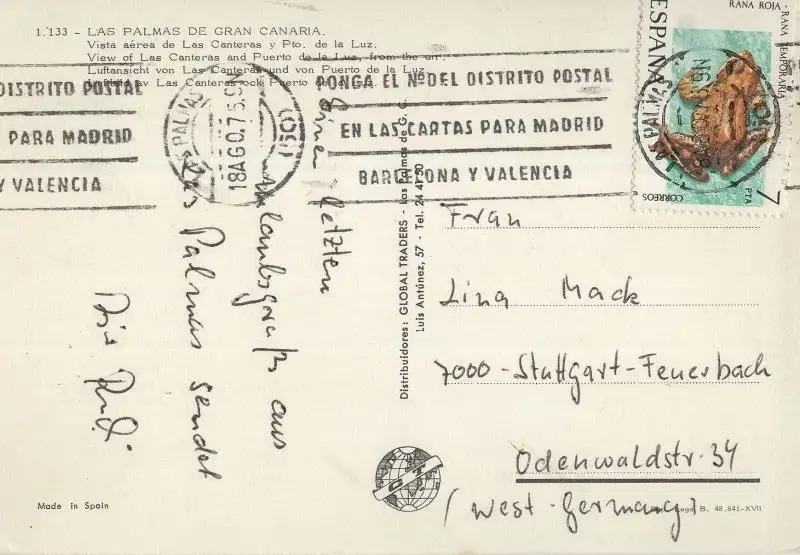 1.133 - LAS PALMAS DE GRAN CANARIA.
Vista aérea de Las Canteras y Pto. de la Luz.
View of Las Canteras and Puerto de la Luz, from the air.
Luftansicht von Las Canteras und von Puerto de la Luz.
av Las Canteras ock Puerto
DISTRITO POSTAL
PARA MADRID
Y VALENCIA
LAS PALMAS
18AGO.75
PONGA EL Nº DEL DISTRITO POSTAL
EN LAS CARTAS PARA MADRID
BARCELONA Y VALENCIA
ESPAÑA
RANA ROJA -
RANA TEMPORARIA
CORREOS
7
PTA
LAS PALMAS
Einen letzten
Urlaubsgruß aus
Las Palmas sendet
Rudi
Distribuidores: GLOBAL TRADERS - Las Palmas de G. C.
Luis Antúnez, 57 - Tel. 24 41 50
Frau
Lina Mack
7000-Stuttgart-Feuerbach
Odenwaldstr. 34
(West-Germany)
G T
Made in Spain
B. 48.841-XVII